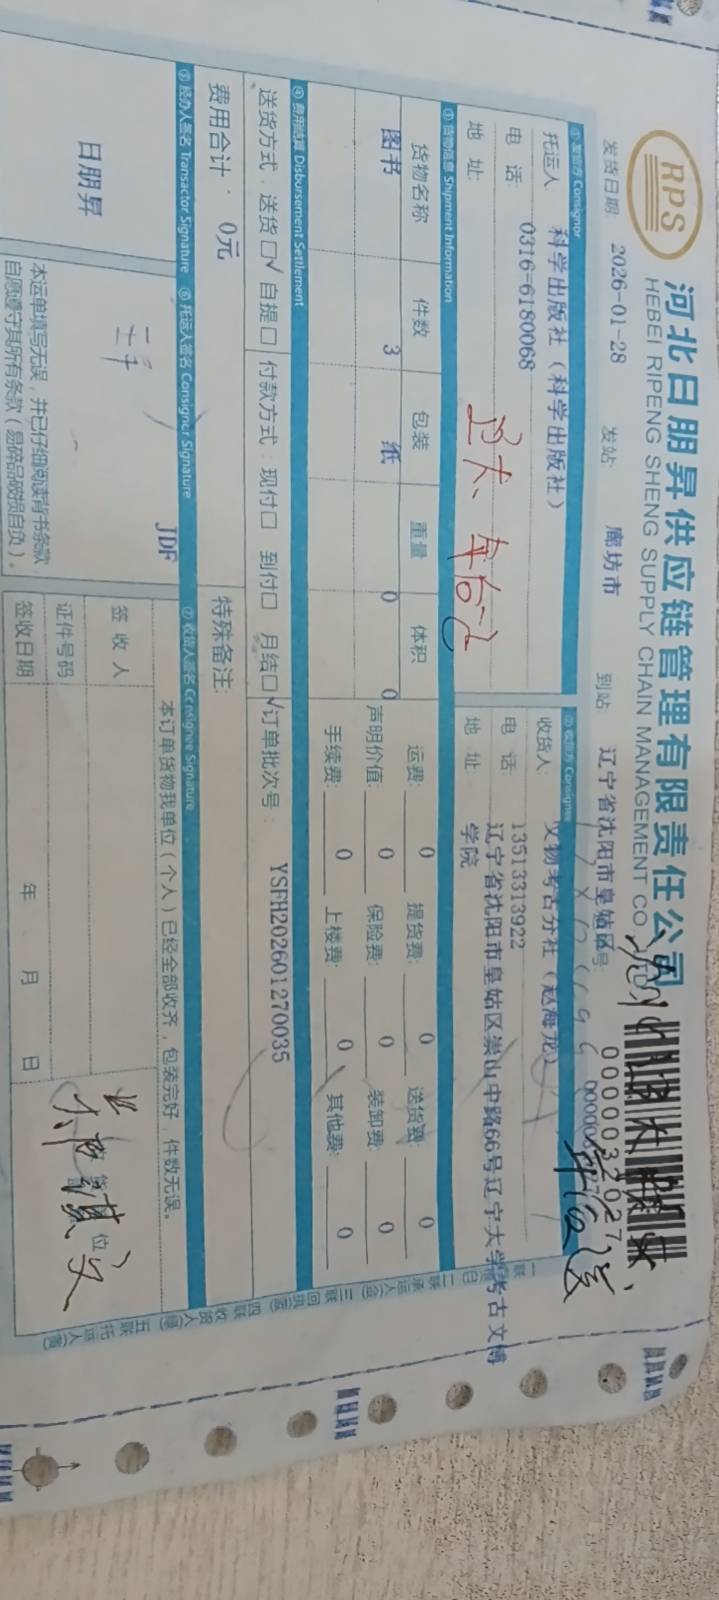 RPS
河北日朋昇供应链管理有限责任公司
HEBEI RIPENG SHENG SUPPLY CHAIN MANAGEMENT CO.
00000032027
发货日期: 2026-01-28 发站: 廊坊市 到站: 辽宁省沈阳市皇姑区 号:
① 发货方 Consignor
托运人: 科学出版社（科学出版社）
电 话: 0316-6180068
地 址:
② 收货方 Consignee
收货人: 文物考古分社（赵海龙）
电 话: 13513313922
地 址: 辽宁省沈阳市皇姑区崇山中路66号辽宁大学考古文博
学院
③ 货物信息 Shipment Information
货物名称 件数 包装 重量 体积
图书 3 纸 0 0
运费: 0 提货费: 0 送货费: 0
声明价值: 0 保险费: 0 装卸费: 0
手续费: 0 上楼费: 0 其他费: 0
④ 费用结算 Disbursement Settlement
送货方式: 送货 □√ 自提 □ 付款方式: 现付□ 到付□ 月结□√ 订单批次号: YSFH202601270035
费用合计: 0元
特殊备注:
⑤ 经办人签名 Transactor Signature ⑥ 托运人签名 Consignor Signature ⑦ 收货人签名 Consignee Signature
日朋昇
JDF
本运单填写无误，并已仔细阅读背书条款
自愿遵守其所有条款（易碎品破损自负）。
本订单货物我单位（个人）已经全部收齐，包装完好，件数无误。
签 收 人
证件号码
签收日期 年 月 日